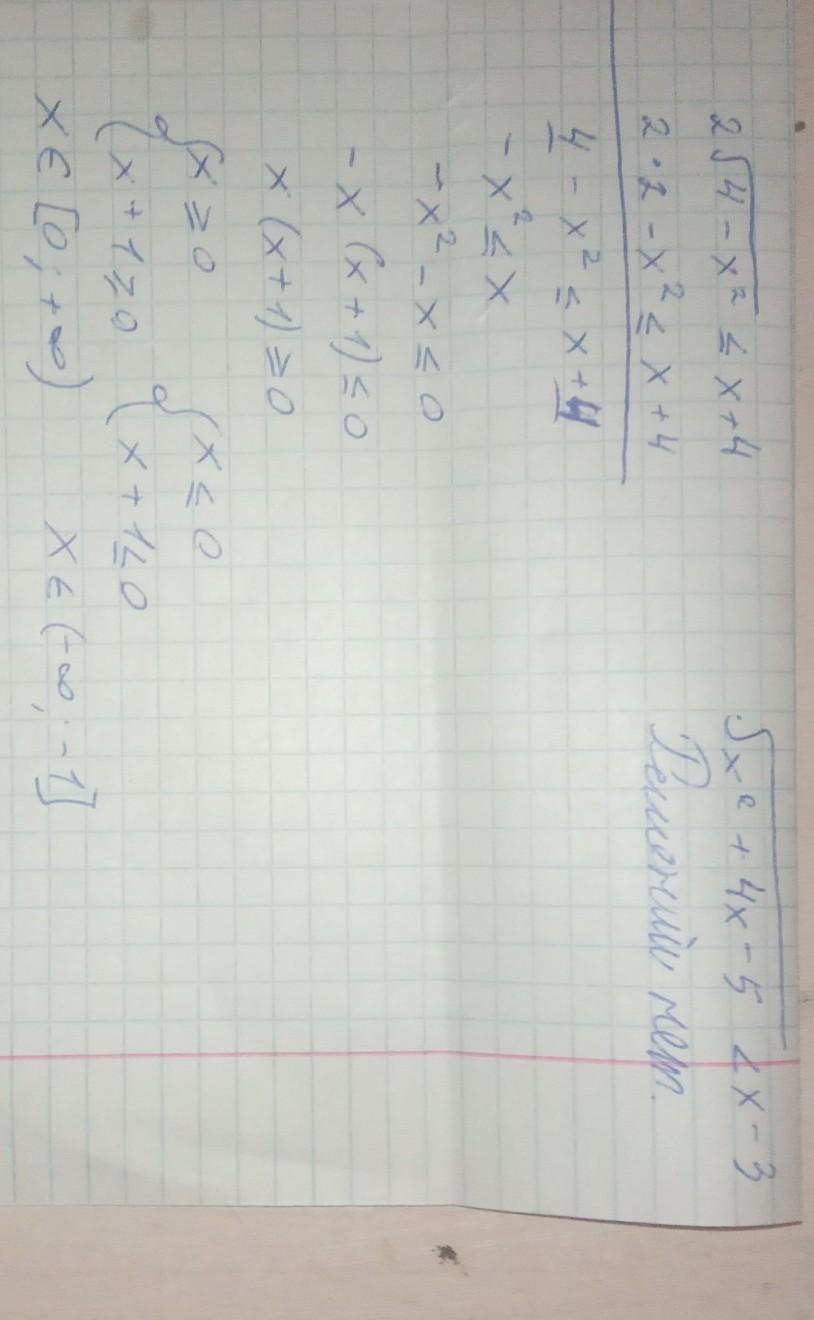 2√4 - x² ≤ x + 4
2·2 - x² ≤ x + 4
4 - x² ≤ x + 4
- x² ≤ x
- x² - x ≤ 0
- x (x + 1) ≤ 0
x (x + 1) ≥ 0
{ x ≥ 0
x + 1 ≥ 0
{ x ≤ 0
x + 1 ≤ 0
x ∈ [0; +∞)
x ∈ (-∞; -1]
√x² + 4x - 5 < x - 3
Решений нет.